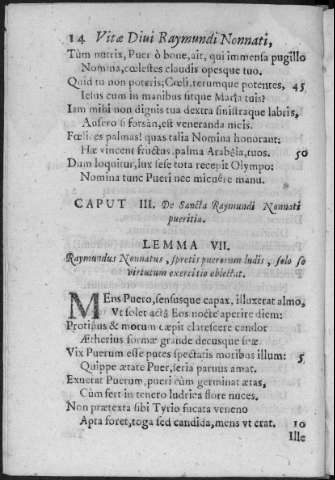 14 Vitæ Diui Raymundi Nonnati,
Tùm nutrix, Puer ò bone, ait, qui immensa pugillo
Nomina, cœlestes claudis opesque tuo.
Quid tu non poteris; Cœli, terrarumque potentes, 45
Iesus cum in manibus sitque Maria tuis?
Iam mihi non dignis tua dextra sinistraque labris,
Aufero si forsàn, est veneranda meis.
Fœlices palmas! quas talia Nomina honorant:
Hæ vincent fructus, palma Arabèla, tuos. 50
Dum loquitur, lux sese tota recepit Olympo:
Nomina tunc Pueri nec micuêre manu.
CAPUT III. De Sancta Raymundi Nonnati
pueritia.
LEMMA VII.
Raymundus Nonnatus, spretis puerorum ludis, solo se
virtutum exercitio obiectat.
MEns Puero, sensusque capax, illuxerat almo,
Vt solet actâ Eos nocte aperire diem:
Protinus & morum cæpit clarescere candor
Ætherius formæ grande decusque suæ
Vix Puerum esse putes spectatis moribus illum: 5
Quippe ætate Puer, seria paruus amat.
Exuerat Puerum, pueri cùm germinat ætas,
Cùm fert in tenero ludrica flore nuces.
Non prætexta sibi Tyrio fucata veneno
Apta foret, toga sed candida, mens vt erat. 10
Ille